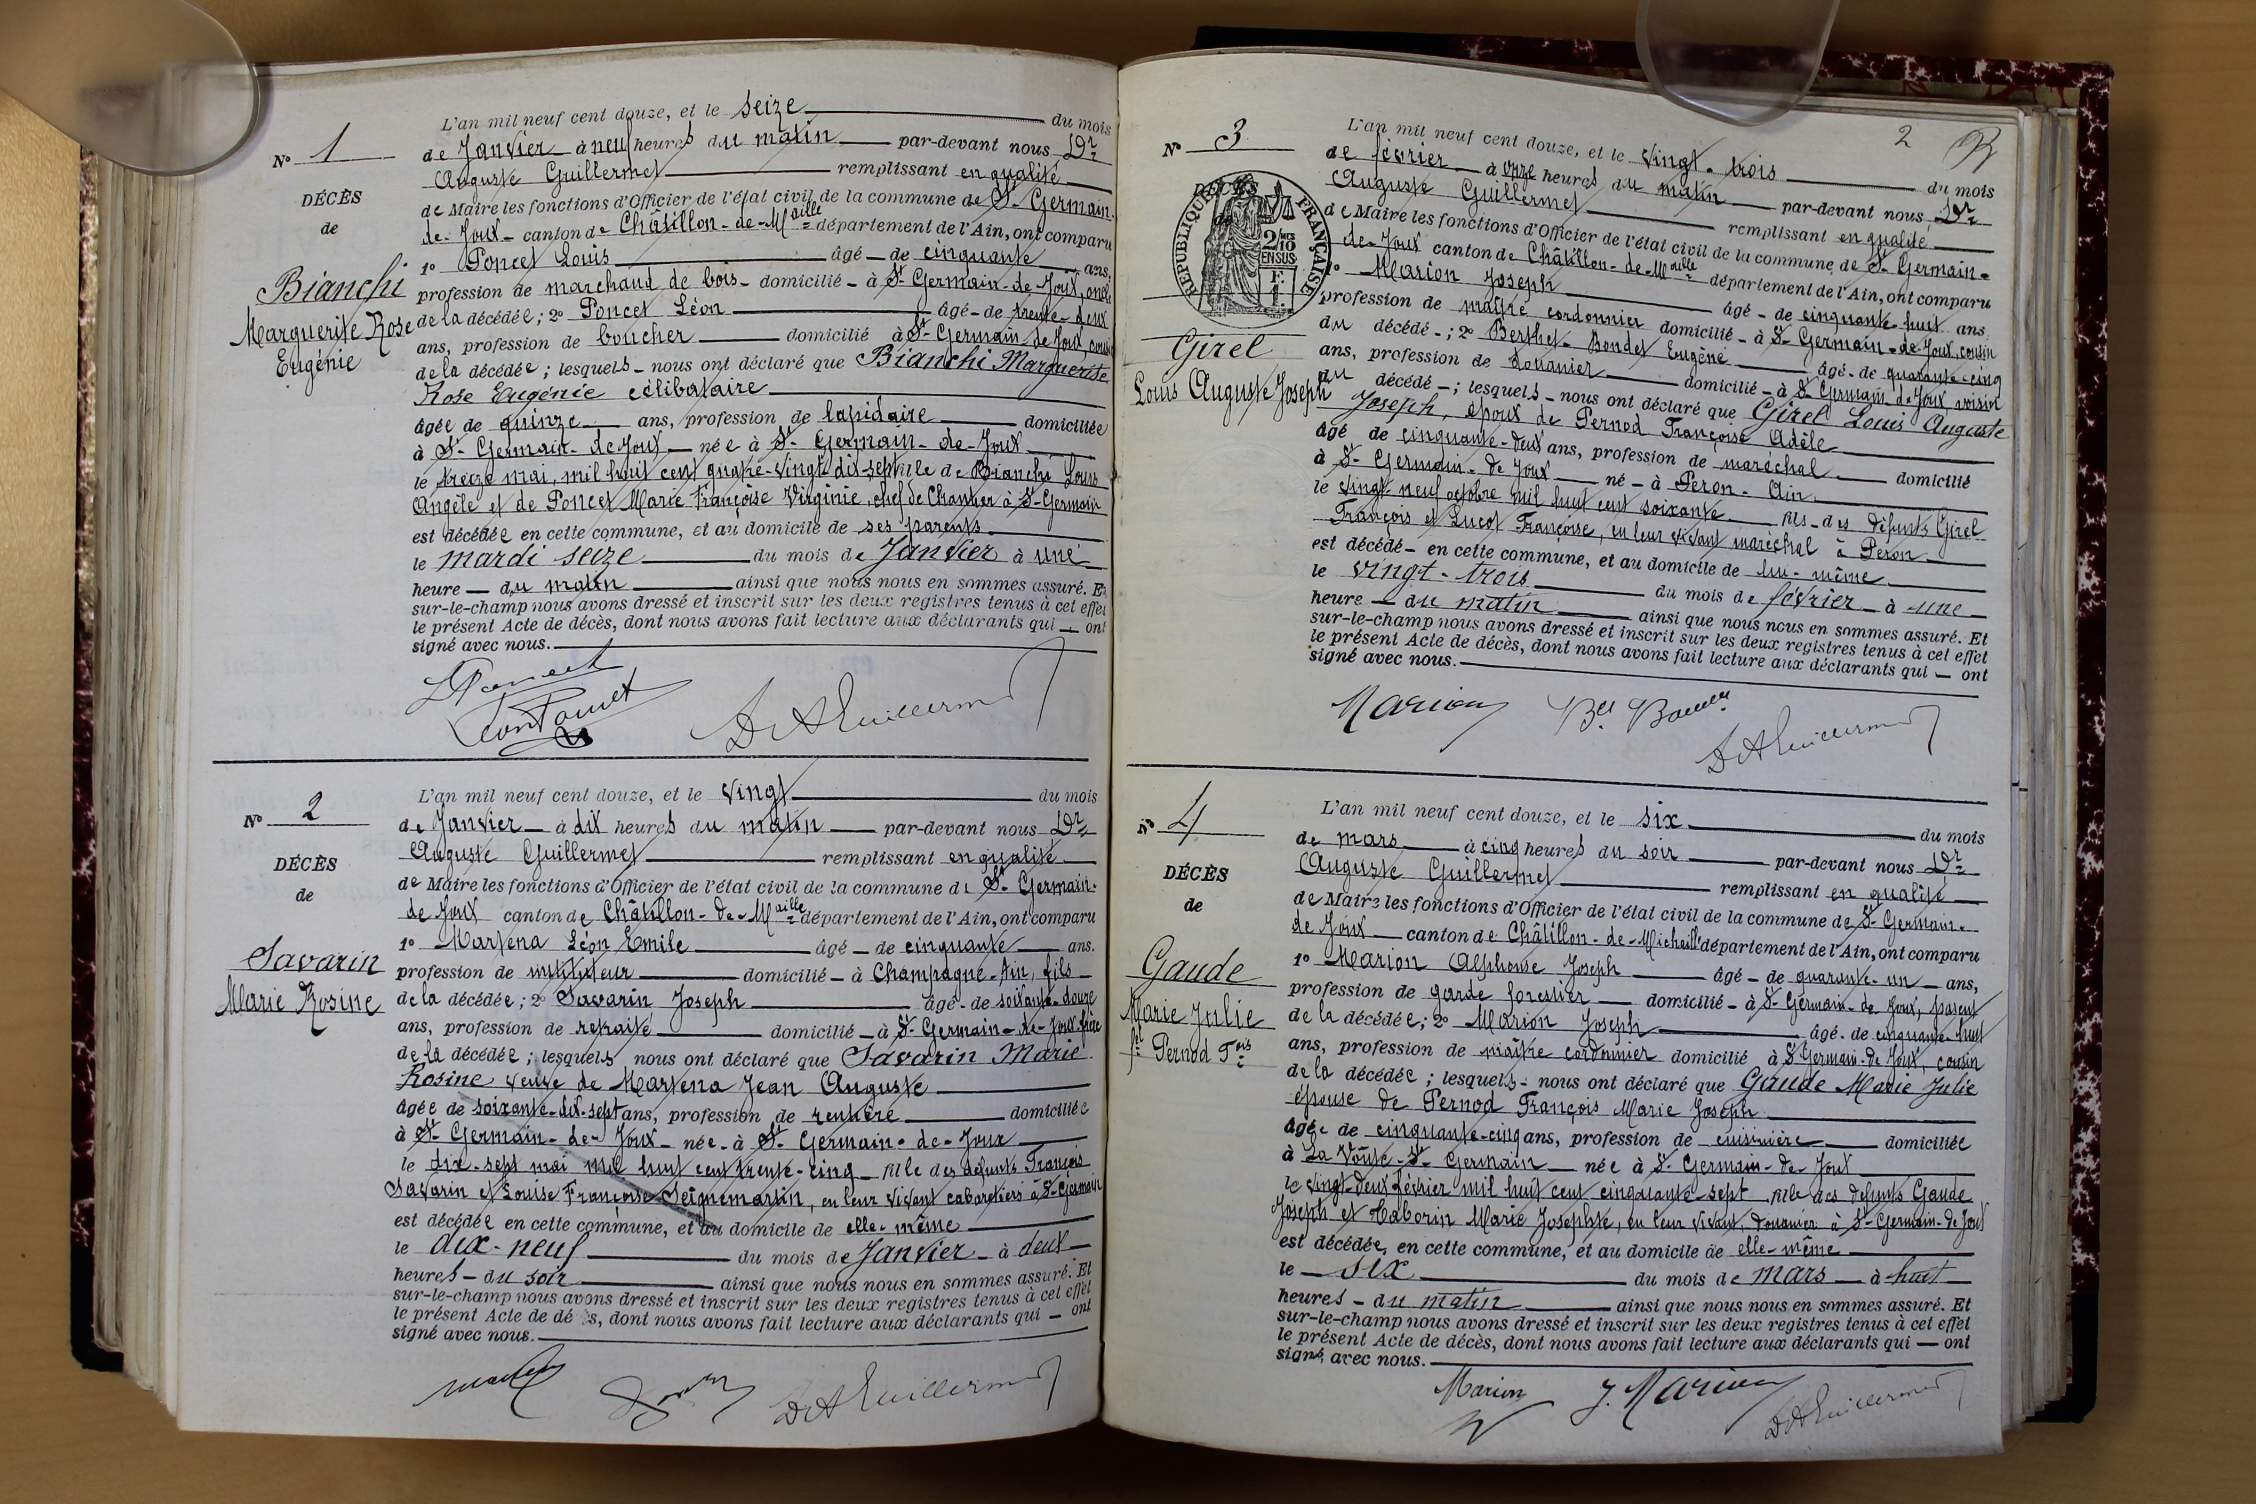 N° 1
DÉCÈS
de
Bianchi
Marguerite Rose
Eugénie
L'an mil neuf cent douze, et le seize du mois
de Janvier à neuf heures du matin par-devant nous Dr
Auguste Guillermet remplissant en qualité
de Maire les fonctions d'Officier de l'état civil de la commune de St Germain-
de-Joux canton de Châtillon-de-Maille département de l'Ain, ont comparu
1° Poncet Louis âgé de cinquante ans,
profession de marchand de bois domicilié à St Germain-de-Joux, oncle
de la décédée; 2° Poncet Léon âgé de trente-deux
ans, profession de boucher domicilié à St Germain de Joux, cousin
de la décédée; lesquels nous ont déclaré que Bianchi Marguerite
Rose Eugénie célibataire
âgée de quinze ans, profession de lapidaire domiciliée
à St Germain-de Joux née à St Germain-de-Joux
le treize mai, mil huit cent quatre-vingt dix-sept fille de Bianchi Louis
Angèle et de Poncet Marie Françoise Virginie, chef de Chantier à St-Germain
est décédée en cette commune, et au domicile de ses parents
le mardi seize du mois de Janvier à une
heure du matin ainsi que nous nous en sommes assuré. Et
sur-le-champ nous avons dressé et inscrit sur les deux registres tenus à cet effet
le présent Acte de décès, dont nous avons fait lecture aux déclarants qui ont
signé avec nous.
L Poncet
Léon Poncet
Dr A Guillermet
N° 2
DÉCÈS
de
Savarin
Marie Rosine
L'an mil neuf cent douze, et le vingt du mois
de Janvier à dix heures du matin par-devant nous Dr
Auguste Guillermet remplissant en qualité
de Maire les fonctions d'Officier de l'état civil de la commune de St Germain-
de Joux canton de Châtillon-de-Maille département de l'Ain, ont comparu
1° Martena Léon Emile âgé de cinquante ans.
profession de instituteur domicilié à Champagne-Ain, fils
de la décédée; 2° Savarin Joseph âgé de soixante-douze
ans, profession de retraité domicilié à St Germain-de-Joux frère
de la décédée; lesquels nous ont déclaré que Savarin Marie
Rosine veuve de Martena Jean Auguste
âgée de soixante-dix-sept ans, profession de rentière domiciliée
à St Germain-de-Joux née à St Germain-de-Joux
le dix-sept mai mil huit cent trente-cinq fille des défunts François
Savarin et Louise Françoise Seignemartin, en leur vivant cabaretiers à St-Germain
est décédée en cette commune, et au domicile de elle-même
le dix-neuf du mois de Janvier à deux
heures du soir ainsi que nous nous en sommes assuré. Et
sur-le-champ nous avons dressé et inscrit sur les deux registres tenus à cet effet
le présent Acte de décès, dont nous avons fait lecture aux déclarants qui ont
signé avec nous.
Dr A Guillermet
2
N° 3
DÉCÈS
de
RÉPUBLIQUE FRANÇAISE
2/10 EN SUS
Girel
Louis Auguste Joseph
L'an mil neuf cent douze, et le vingt-trois du mois
de février à onze heures du matin par-devant nous Dr
Auguste Guillermet remplissant en qualité
de Maire les fonctions d'Officier de l'état civil de la commune de St Germain-
de-Joux canton de Châtillon-de-Maille département de l'Ain, ont comparu
1° Marion Joseph âgé de cinquante-huit ans
profession de maître cordonnier domicilié à St Germain-de-Joux, cousin
du décédé; 2° Berthet-Bondet Eugène âgé de quarante-cinq
ans, profession de douanier domicilié à St Germain de Joux, voisin
du décédé; lesquels nous ont déclaré que Girel Louis Auguste
Joseph, époux de Pernod Françoise Adèle
âgé de cinquante-deux ans, profession de maréchal domicilié
à St Germain-de Joux né à Peron-Ain
le vingt neuf octobre mil huit cent soixante fils des défunts Girel
François et Lucot Françoise, en leur vivant maréchal à Peron
est décédé en cette commune, et au domicile de lui-même
le vingt-trois du mois de février à une
heure du matin ainsi que nous nous en sommes assuré. Et
sur-le-champ nous avons dressé et inscrit sur les deux registres tenus à cet effet
le présent Acte de décès, dont nous avons fait lecture aux déclarants qui ont
signé avec nous.
Marion
Dr A Guillermet
N° 4
DÉCÈS
de
Gaude
Marie Julie
Pernod Fois
L'an mil neuf cent douze, et le six du mois
de mars à cinq heures du soir par-devant nous Dr
Auguste Guillermet remplissant en qualité
de Maire les fonctions d'Officier de l'état civil de la commune de St Germain-
de Joux canton de Châtillon-de-Michaille département de l'Ain, ont comparu
1° Marion Alphonse Joseph âgé de quarante-un ans,
profession de garde forestier domicilié à St Germain-de Joux, parent
de la décédée; 2° Marion Joseph âgé de cinquante-huit
ans, profession de maître cordonnier domicilié à St Germain-de Joux, cousin
de la décédée; lesquels nous ont déclaré que Gaude Marie Julie
épouse de Pernod François Marie Joseph
âgée de cinquante-cinq ans, profession de cuisinière domiciliée
à La Voûte-St Germain née à St Germain-de Joux
le vingt-deux février mil huit cent cinquante-sept fille des défunts Gaude
Joseph et Taborin Marie Josephte, en leur vivant, douanier à St-Germain-de Joux
est décédée, en cette commune, et au domicile de elle-même
le six du mois de mars à huit
heures du matin ainsi que nous nous en sommes assuré. Et
sur-le-champ nous avons dressé et inscrit sur les deux registres tenus à cet effet
le présent Acte de décès, dont nous avons fait lecture aux déclarants qui ont
signé avec nous.
Marion
J. Marion
Dr A Guillermet